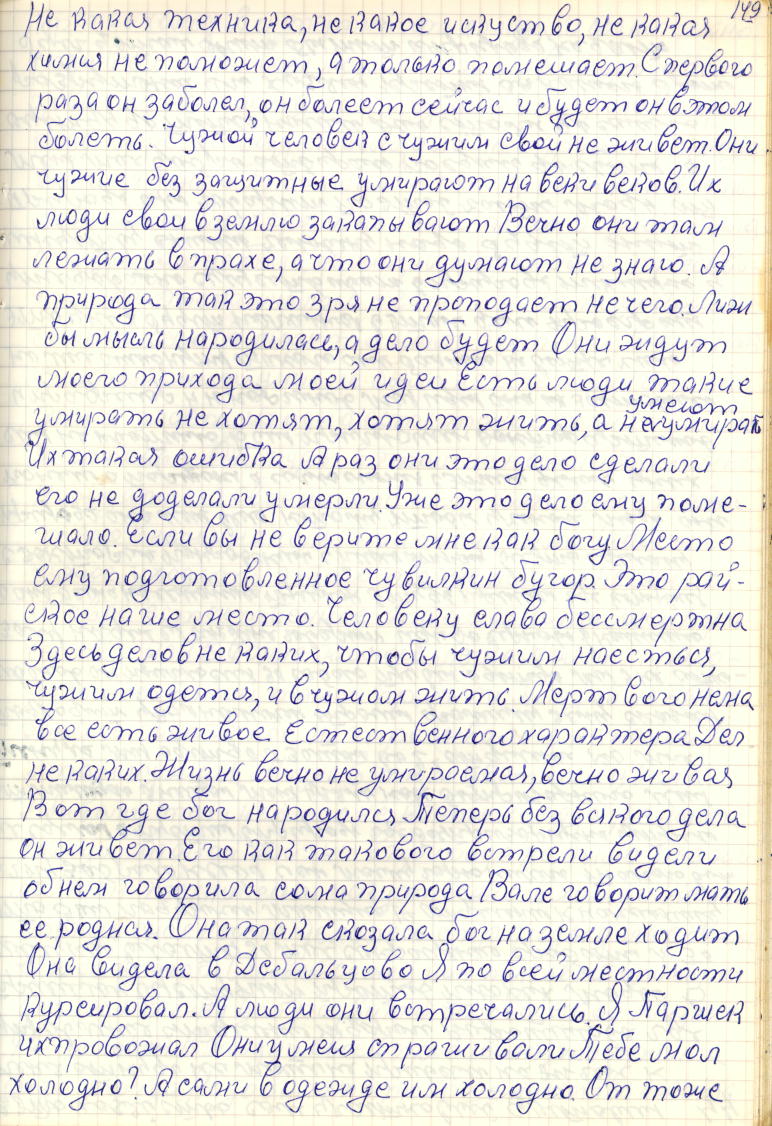 149
Не какая техника, не какое искуство, не какая
химия не поможет, а только помешает. С первого
раза он заболел, он болеет сейчас и будет он в этом
болеть. Чужой человек с чужим свой не живет. Они
чужие без защитные умирают на веки веков. Их
люди свои в землю закапывают Вечно они там
лежать в прахе, а что они думают не знаю. А
природа так это зря не проподает не чего. Лиж
бы мысль народилась, а дело будет Они ждут
моего прихода моей идеи Есть люди такие
умирать не хотят, хотят жить, а не умеют умират
Их такая ошибка А раз они это дело сделали
его не доделали умерли. Уже это дело ему поме-
шало. Если вы не верите мне как богу. Место
ему подготовленное чувилкин бугор. Это рай-
ское наше место. Человеку слава бессмертна
Здесь делов не каких, чтобы чужим наесться,
чужим одется, и в чужом жить. Мертвого нема
все есть живое Естественного характера Дел
не каких. Жизнь вечно не умираемая, вечно живая
Вот где бог народился Теперь без всякого дела
он живет. Его как такового встрели видели
об нем говорила сама природа Вале говорит мать
ее родная. Она так сказала бог на земле ходит
Она видела в Дебальцово Я по всей местности
курсировал. А люди они встречались. Я Паршек
их провожал Они у меня спрашивали Тебе мол
холодно? А сами в одежде им холодно. От тоже